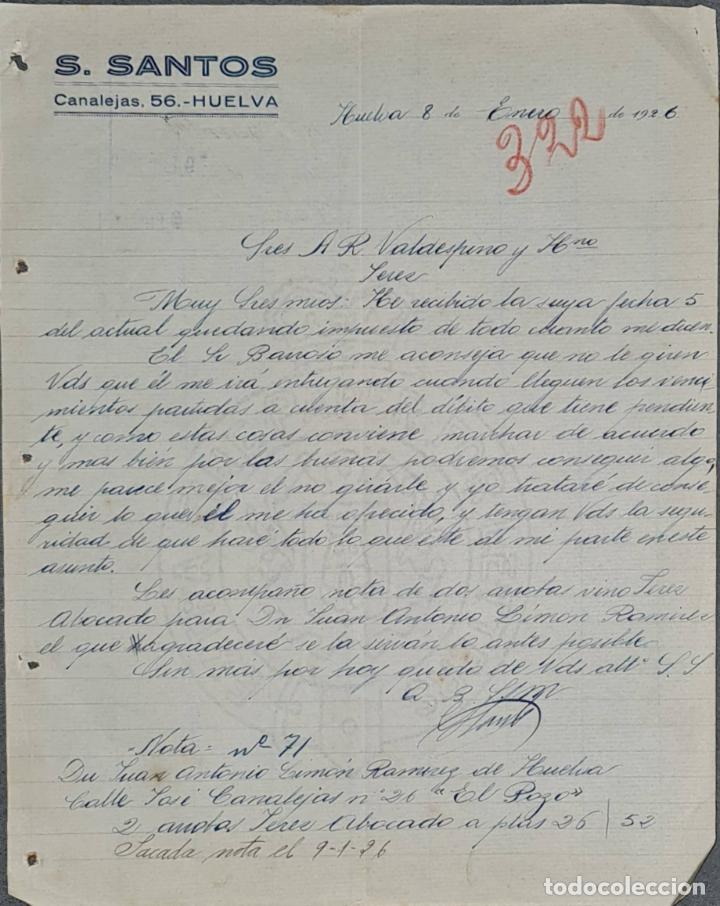 S. SANTOS
Canalejas, 56.-HUELVA
Huelva 8 de Enero de 1926
322
Sres A R. Valdespino y Hno
Jerez
Muy Sres mios: He recibido la suya fecha 5
del actual quedando impuesto de todo cuanto me dicen.
El Sr Barroso me aconseja que no le giren
Vds que él me irá entregando cuando lleguen los venci
mientos partidas a cuenta del débito que tiene pendien
te, y como estas cosas conviene marchar de acuerdo
y mas bien por las buenas podremos conseguir algo,
me parece mejor el no girarle y yo trataré de conse
guir lo que él me ha ofrecido, y tengan Vds la segu
ridad de que haré todo lo que esté de mi parte en este
asunto.
Les acompaño nota de dos arrobas vino Jerez
Abocado para Dn Juan Antonio Limon Ramirez
el que agradeceré se la sirvan lo antes posible
Sin más por hoy queda de Vds att° S. S.
Nota= nº 71
Dn Juan Antonio Limón Ramirez de Huelva
Calle José Canalejas nº 26 "El Pozo"
2 arrobas Jerez Abocado a ptas 26 | 52
Sacada nota el 9-1-26
todocoleccion